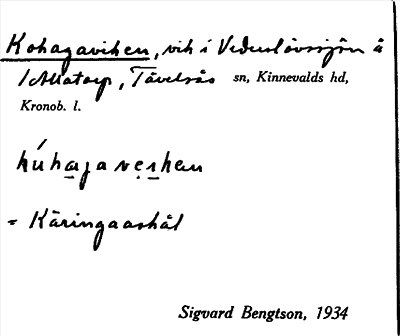 Kohagaviken, vik i Vederslövssjön å
Tävelsås sn, Kinnevalds hd,
Kronob. l.
kúhagavei̯ken
= Käringaashål
Sigvard Bengtson, 1934